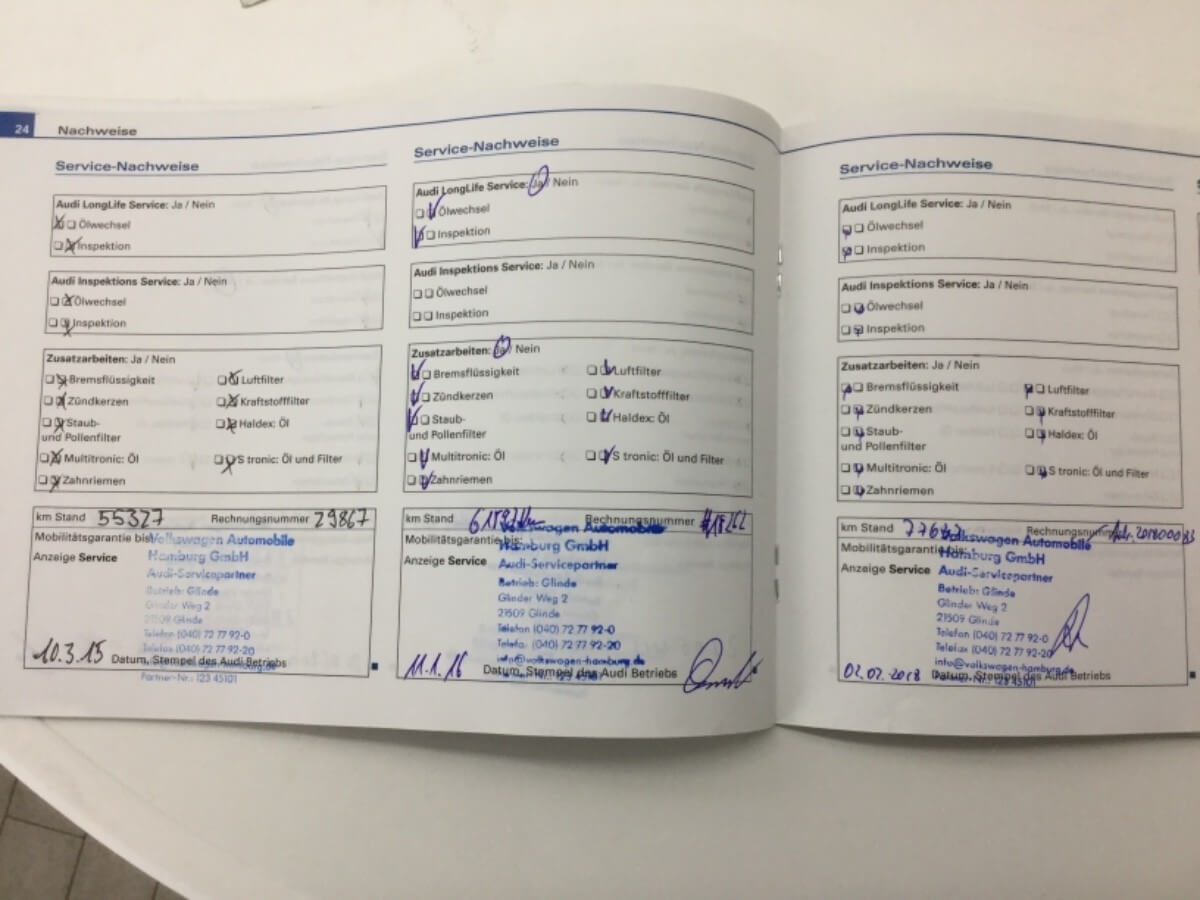 24 Nachweise
Service-Nachweise
Audi LongLife Service: Ja / Nein
Ölwechsel
Inspektion
Audi Inspektions Service: Ja / Nein
Ölwechsel
Inspektion
Zusatzarbeiten: Ja / Nein
Bremsflüssigkeit Luftfilter
Zündkerzen Kraftstofffilter
Staub- Haldex: Öl
und Pollenfilter
Multitronic: Öl S tronic: Öl und Filter
Zahnriemen
km Stand 55327 Rechnungsnummer 29867
Mobilitätsgarantie bis: Volkswagen Automobile
Hamburg GmbH
Anzeige Service
Audi-Servicepartner
Betrieb: Glinde
Glinder Weg 2
21509 Glinde
Telefon (040) 72 77 92-0
Telefax (040) 72 77 92-20
10.3.15 Datum, Stempel des Audi Betriebs
Partner-Nr.: 123 45101
Service-Nachweise
Audi LongLife Service: Ja / Nein
Ölwechsel
Inspektion
Audi Inspektions Service: Ja / Nein
Ölwechsel
Inspektion
Zusatzarbeiten: Ja / Nein
Bremsflüssigkeit Luftfilter
Zündkerzen Kraftstofffilter
Staub- Haldex: Öl
und Pollenfilter
Multitronic: Öl S tronic: Öl und Filter
Zahnriemen
km Stand Rechnungsnummer
Volkswagen Automobile
Mobilitätsgarantie bis:
Hamburg GmbH
Anzeige Service Audi-Servicepartner
Betrieb: Glinde
Glinder Weg 2
21509 Glinde
Telefon (040) 72 77 92-0
Telefax (040) 72 77 92-20
info@volkswagen-hamburg.de
11.1.16 Datum, Stempel des Audi Betriebs
Service-Nachweise
Audi LongLife Service: Ja / Nein
Ölwechsel
Inspektion
Audi Inspektions Service: Ja / Nein
Ölwechsel
Inspektion
Zusatzarbeiten: Ja / Nein
Bremsflüssigkeit Luftfilter
Zündkerzen Kraftstofffilter
Staub- Haldex: Öl
und Pollenfilter
Multitronic: Öl S tronic: Öl und Filter
Zahnriemen
km Stand Rechnungsnummer
Volkswagen Automobile
Mobilitätsgarantie bis:
Hamburg GmbH
Anzeige Service Audi-Servicepartner
Betrieb: Glinde
Glinder Weg 2
21509 Glinde
Telefon (040) 72 77 92-0
Telefax (040) 72 77 92-20
info@volkswagen-hamburg.de
02.02.2018 Datum, Stempel des Audi Betriebs
Partner-Nr.: 123 45101